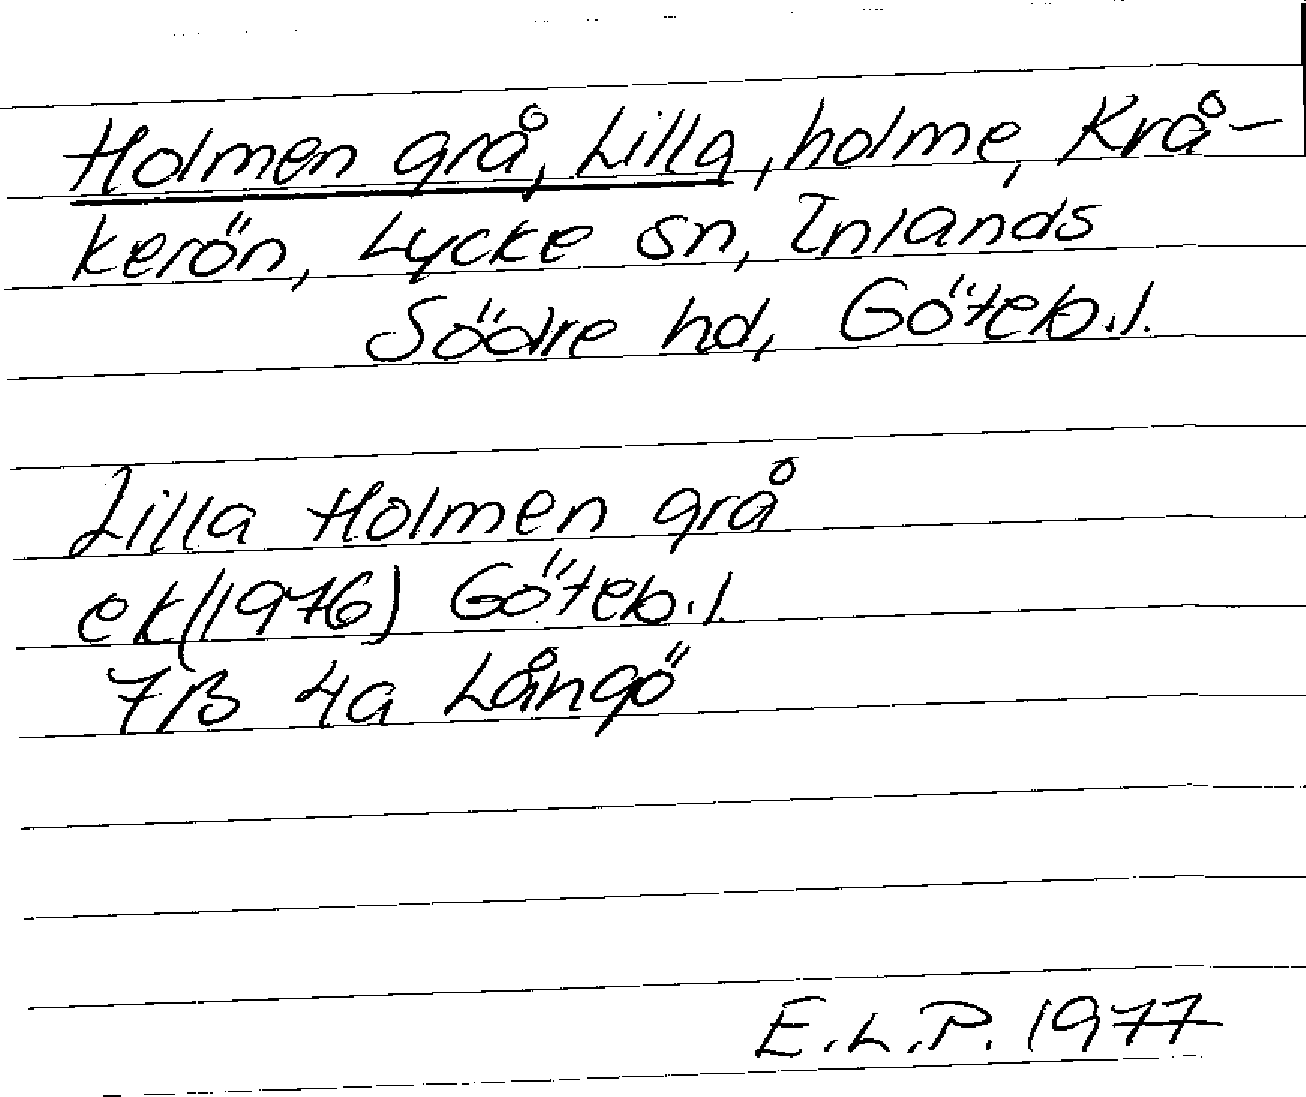 Holmen grå, Lilla, holme, Krå-
kerön, Lycke sn, Inlands
Södre hd, Göteb.l.
Lilla Holmen grå
ek(1976) Göteb.l.
7B 4a Långö
E.L.P. 1977